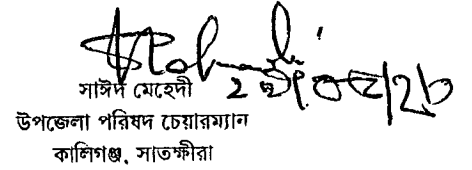 সাঈদ মেহেদী
উপজেলা পরিষদ চেয়ারম্যান
কালিগঞ্জ, সাতক্ষীরা